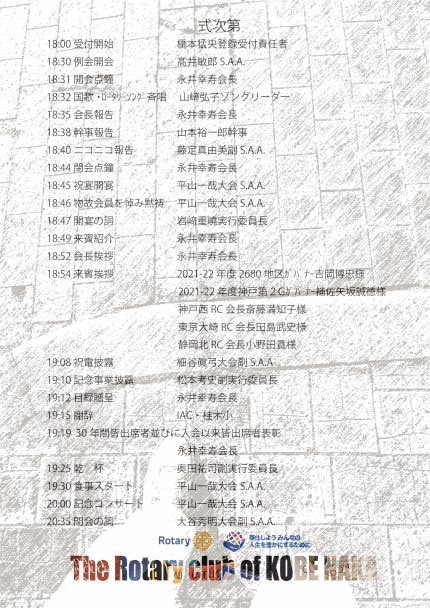 式次第
18:00 受付開始 橋本猛央登録受付責任者
18:30 例会開会 髙井敏郎 S.A.A.
18:31 開会点鐘 永井幸寿会長
18:32 国歌・ﾛｰﾀﾘｰｿﾝｸﾞ斉唱 山﨑弘子ソングリーダー
18:35 会長報告 永井幸寿会長
18:38 幹事報告 山本裕一郎幹事
18:40 ニコニコ報告 藤定真由美副 S.A.A.
18:44 閉会点鐘 永井幸寿会長
18:45 祝宴開宴 平山一哉大会 S.A.A.
18:46 物故会員を悼み黙祷 平山一哉大会 S.A.A.
18:47 開宴の詞 岩﨑重曉実行委員長
18:49 来賓紹介 永井幸寿会長
18:52 会長挨拶 永井幸寿会長
18:54 来賓挨拶 2021-22 年度 2680 地区ｶﾞﾊﾞﾅｰ吉岡博忠様
2021-22 年度神戸第 2 Gｶﾞﾊﾞﾅｰ補佐矢坂誠徳様
神戸西 RC 会長斎藤満知子様
東京大崎 RC 会長田島武史様
静岡北 RC 会長小野田員様
19:08 祝電披露 細谷眞弓大会副 S.A.A.
19:10 記念事業披露 松本考史副実行委員長
19:12 目録贈呈 永井幸寿会長
19:15 謝辞 IAC・桂木小
19:19 30 年間皆出席者並びに入会以来皆出席者表彰
永井幸寿会長
19:25 乾　杯 奥田祐司副実行委員長
19:30 食事スタート 平山一哉大会 S.A.A.
20:00 記念コンサート 平山一哉大会 S.A.A.
20:35 閉会の詞 大谷秀明大会副 S.A.A.
Rotary 奉仕しよう みんなの
人生を豊かにするために
The Rotary club of KOBE NAKA